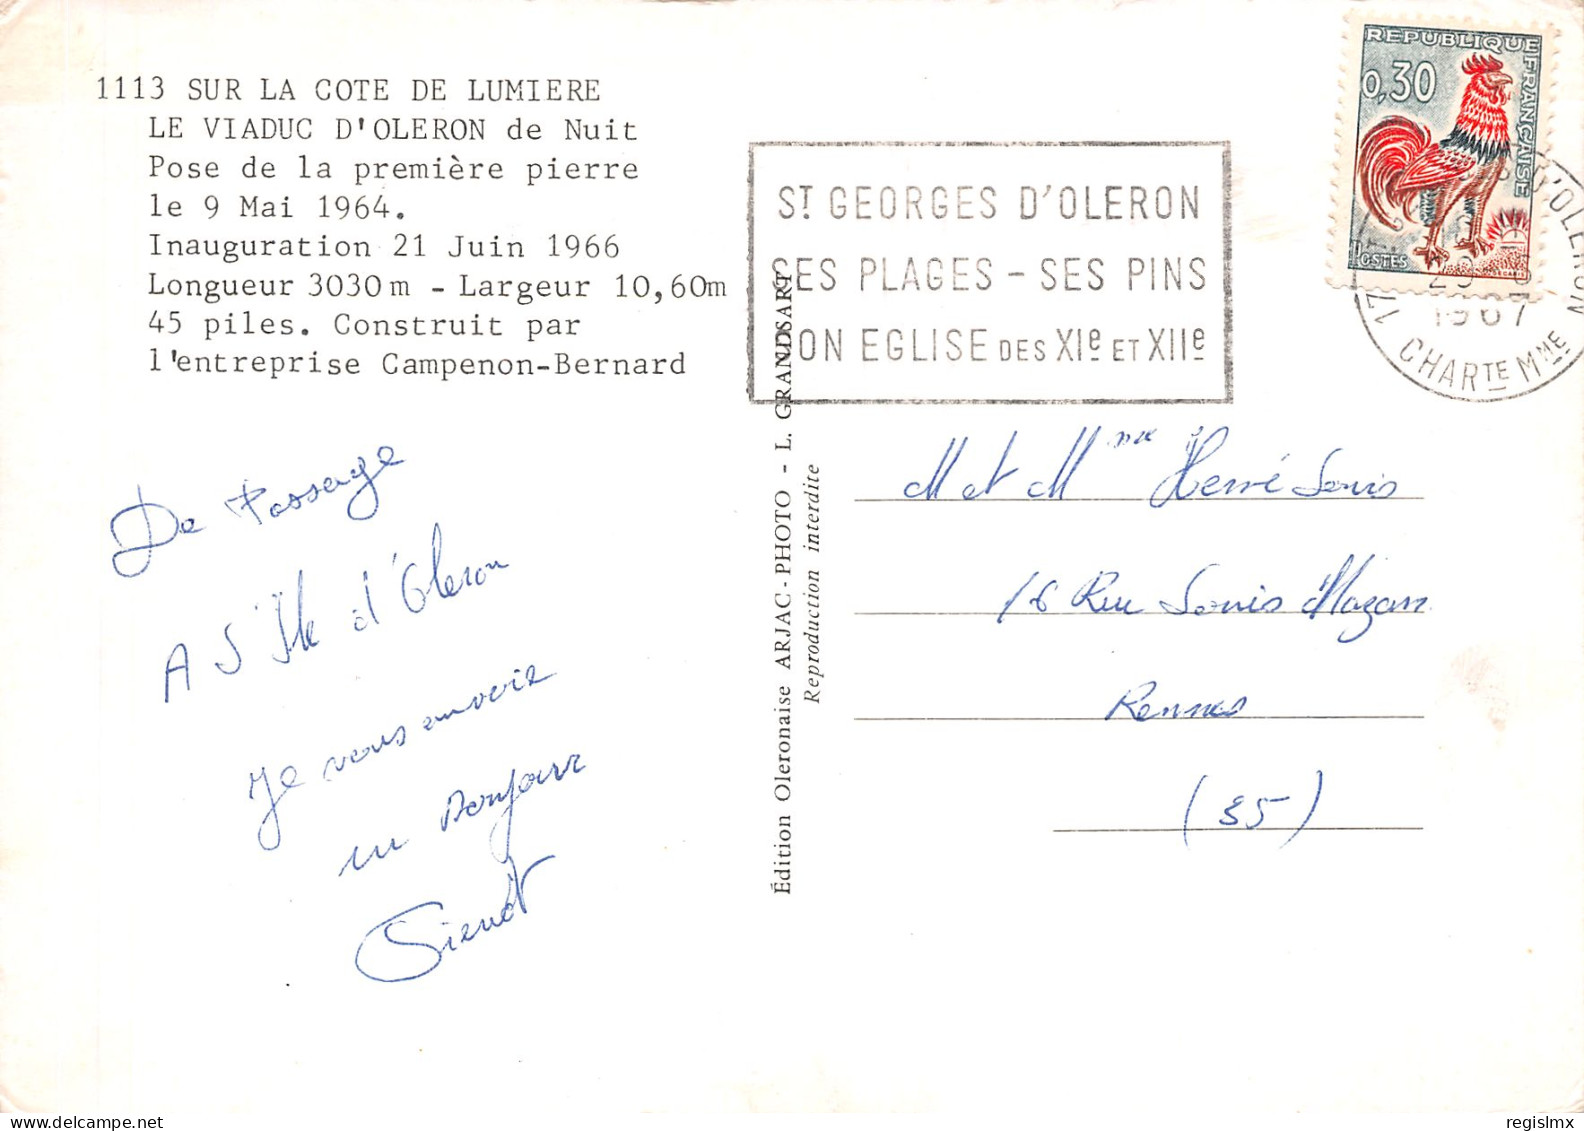 1113 SUR LA COTE DE LUMIERE
LE VIADUC D'OLERON de Nuit
Pose de la première pierre
le 9 Mai 1964.
Inauguration 21 Juin 1966
Longueur 3030m - Largeur 10,60m
45 piles. Construit par
l'entreprise Campenon-Bernard
De Passage
A L'Ile d'Oleron
Je vous envoie
un Bonjour
Édition Oleronaise ARJAC-PHOTO - L. GRANDSART
Reproduction interdite
ST GEORGES D'OLERON
SES PLAGES - SES PINS
SON EGLISE DES XIe ET XIIe
REPUBLIQUE FRANÇAISE
0,30
POSTES
17 D'OLERON
1967
CHARTE MME
M et Mme Hervé Louis
16 Rue Louis Mazan
Rennes
(35)
regislmx